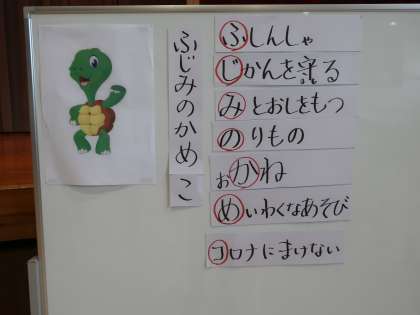 ふじみのかめこ
ふしんしゃ
じかんを守る
みとおしをもつ
のりもの
おかね
めいわくなあそび
コロナにまけない